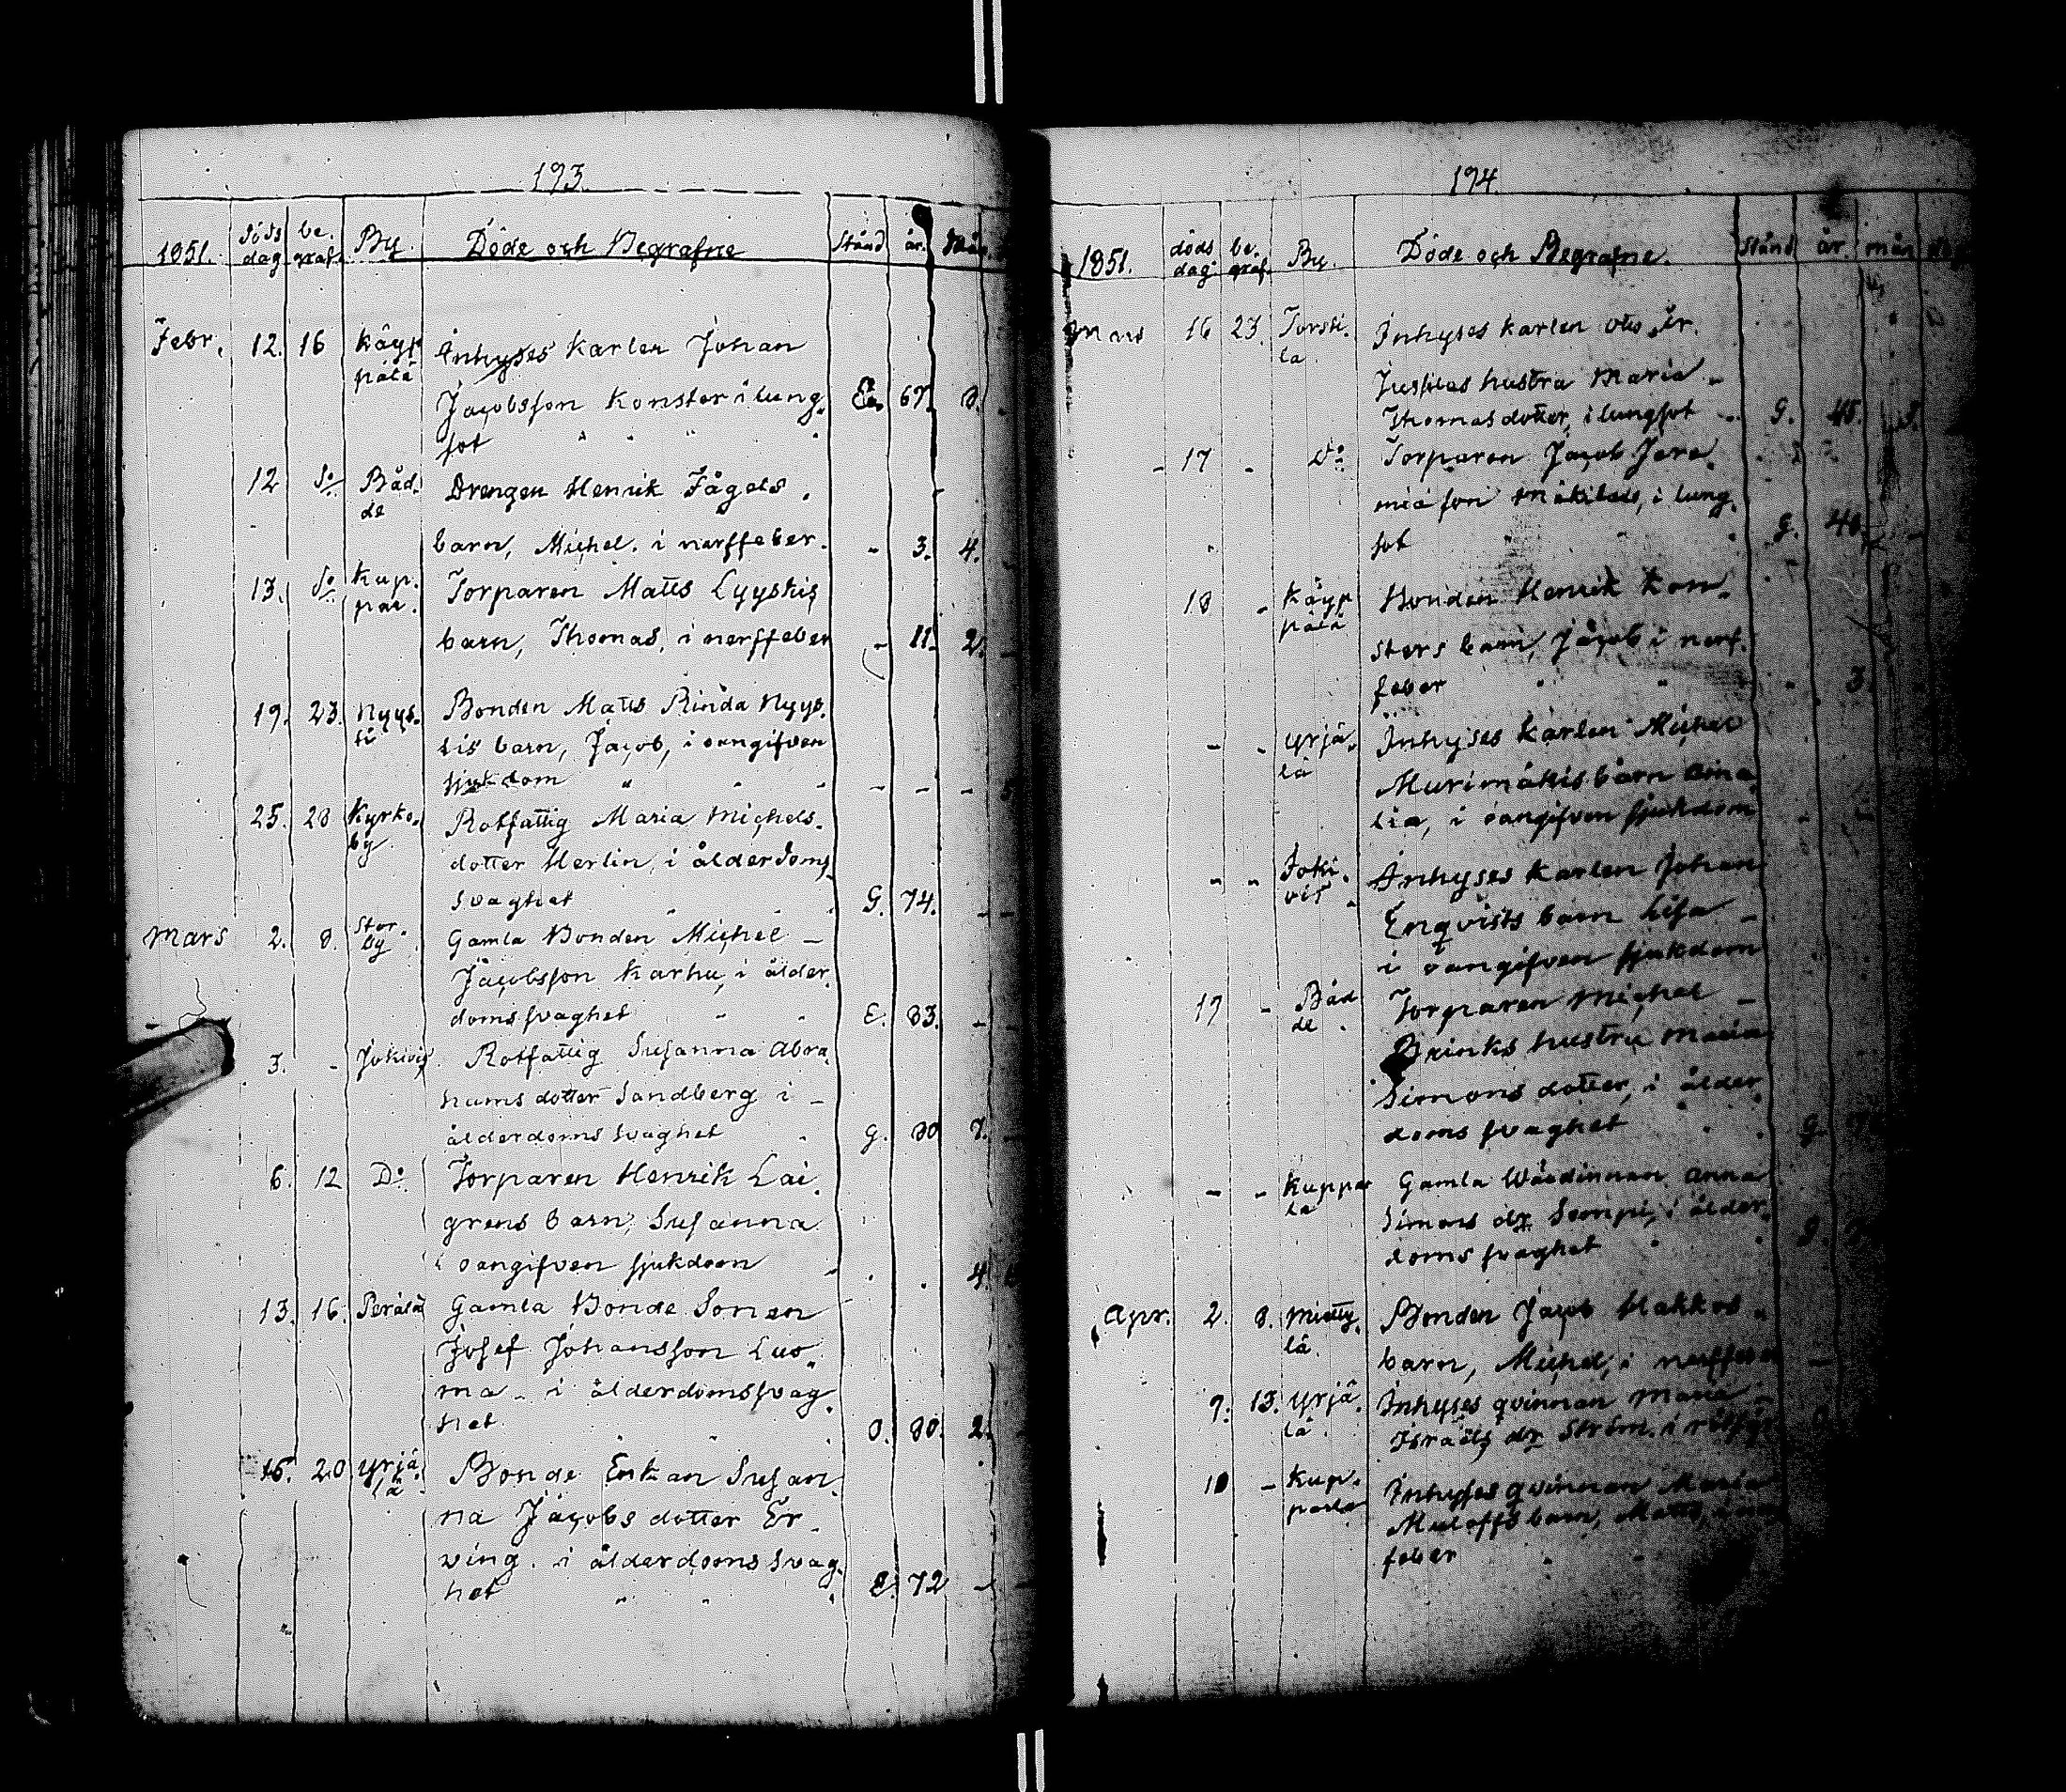 193.
1851. döds dag be. graf. By. Döde och Begrafne Stånd år. Mån
Febr. 12. 16 Käyp pälä Inhyses Karlen Johan
Jacobsson Konster i lung
sot E. 67. 8.
12 do Båd. de Drengen Henrik Fågels
barn, Michel. i nerffeber. - 3. 4.
13. do Kup. par. Torparen Matts Lyyskis
barn, Thomas, i nerffeber - 11. 2.
19. 23. Nyys. ti Bonden Matts Rinda Nyys.
tis barn, Jacob, i oangifven
sjukdom - - - 5
25. 28 Kyrko. by. Rotfattig Maria Michels.
dotter Herlin, i ålderdoms
svaghet G. 74. - -
Mars 2. 8. Stor. by Gamla Bonden Michel -
Jacobsson Karhu, i ålder
domssvaghet E. 83. - -
3. - Jokivis. Rotfattig Susanna Abra
hams dotter Sandberg i -
ålderdoms svaghet G. 80 7. -
6. 12 Do Torparen Henrik Lai
grens barn, Susanna
i oangifven sjukdom . . 4.
13. 16. Perälä Gamla Bonde Sonen
Josef Johansson Luo
ma - i ålderdomssvag
het O. 80. 2.
16. 20 Yrjä. lä Bonde Enkan Susan
na Jacobs dotter Er
ving. i ålderdoms svag.
het E. 72 - -
194.
1851. döds dag be. graf. By. Döde och Begrafne. Stånd år. mån
Mars 16 23. Torsti. la Inhyses Karlen
hustru Maria -
Thomasdotter, i lungsot G. 45.
- 17 - do Torparen Jacob Jere
mia son Mäkiläs, i lung
sot G. 40
18 - Käyp pälä Bonden Henrik Kon
sters barn, Jacob i nerf
feber 3.
- - Yrjä. lä Inhyses Karlen Michel
Murimäkis barn Ama
lia, i oangifven sjukdom
- - Joki. vis Inhyses Karlen Johan
Enqvists barn Lisa -
i oangifven sjukdom
19 - Båd de Torparen Michel -
Brinks hustru Maria
Simons dotter, i ålder
doms svaghet G.
- - Kuppar la Gamla Wärdinnan Anna
Simons dr Sempi, i ålder
doms svaghet G.
Apr. 2. 8. Mietty. lä. Bonden Jacob Hakkos
barn, Michel, i
9. 13. Yrjä. lä. Inhyses qvinnan Maria -
Israels dr Ström. i
10 - Kup. parla Inhyses qvinnan Maria
Muloffs barn, Matts,
feber